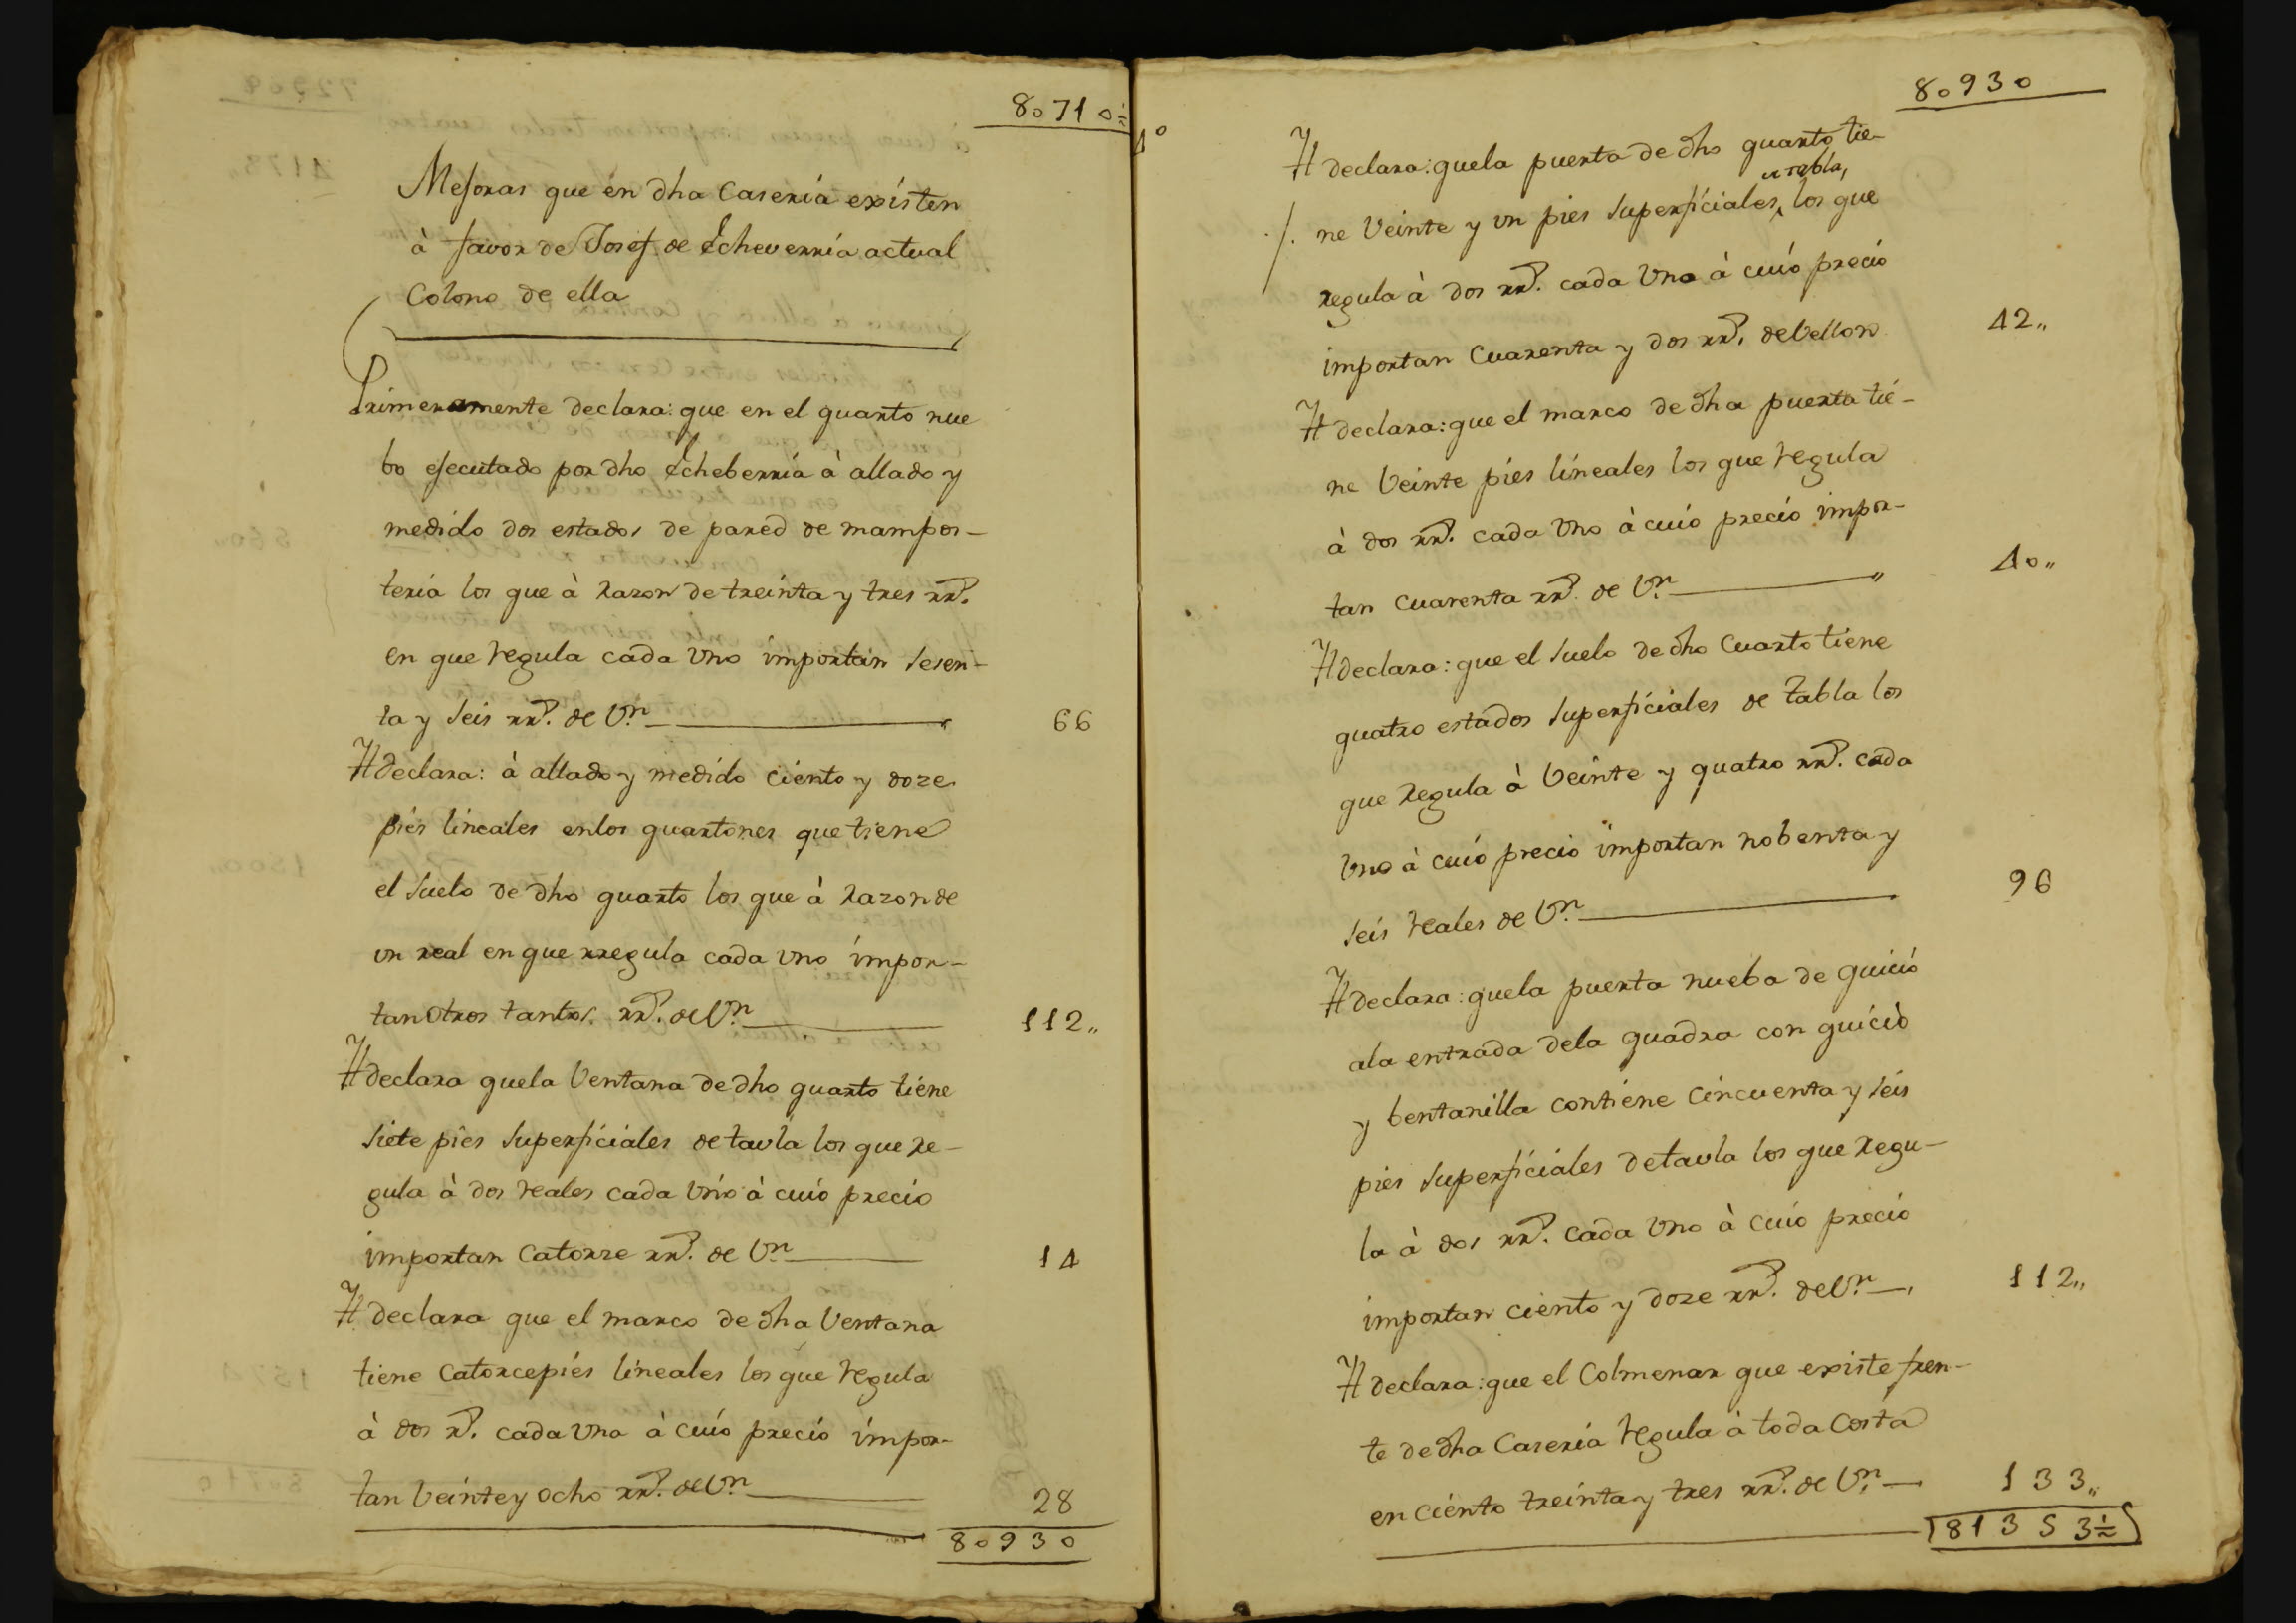 80710½
Mejoras que en dha Caseria existen
à favor de Josef de Echeverria actual
Colono de ella
Primeramente declara: que en el quarto nue
bo ejecutado por dho Echeberria à allado y
medido dos estados de pared de mampos-
teria los que à Razon de treinta y tres rr.^s
en que regula cada uno importan sesen-
ta y seis rr.^s de V.^n 66
It declara: à allado y medido ciento y doze
pies lineales enlos quartones que tiene
el suelo de dho quarto los que à Razon de
un real en que rregula cada uno impor-
tan otros tantos rr.^s de V.^n 112,,
It declara quela Ventana de dho quarto tiene
siete pies superficiales de tavla los que Re-
gula à dos reales cada uno à cuio precio
importan Catorze rr.^s de V.^n 14
It declara que el marco de dha Ventana
tiene Catorcepies lineales los que regula
à dos r.^s cada uno à cuio precio impor-
tan Veinte y ocho rr.^s de V.^n 28
80930
80930
It declara: quela puerta de dho quarto tie-
ne Veinte y un pies superficiales, los que
regula à dos rr.^s cada uno à cuio precio
importan Cuarenta y dos rr.^s de Vellon 42,,
It declara: que el marco de dha puerta tie-
ne Veinte pies lineales los que regula
à dos rr.^s cada uno à cuio precio impor-
tan cuarenta rr.^s de V.^n 40,,
It declara: que el suelo de dho Cuarto tiene
quatro estados superficiales de tabla los
que Regula à Veinte y quatro rr.^s cada
uno à cuio precio importan nobenta y
seis reales de V.^n 96
It declara: quela puerta nueba de quicio
ala entrada dela quadra con quicio
y bentanilla contiene Cincuenta y seis
pies superficiales detavla los que Regu-
la à dos rr.^s cada uno à cuio precio
importan ciento y doze rr.^s de V.^n 112,,
It declara: que el Colmenar que existe fren-
te de dha Caseria regula à toda Costa
en Ciento treinta y tres rr.^s de V.^n 133,,
81353½